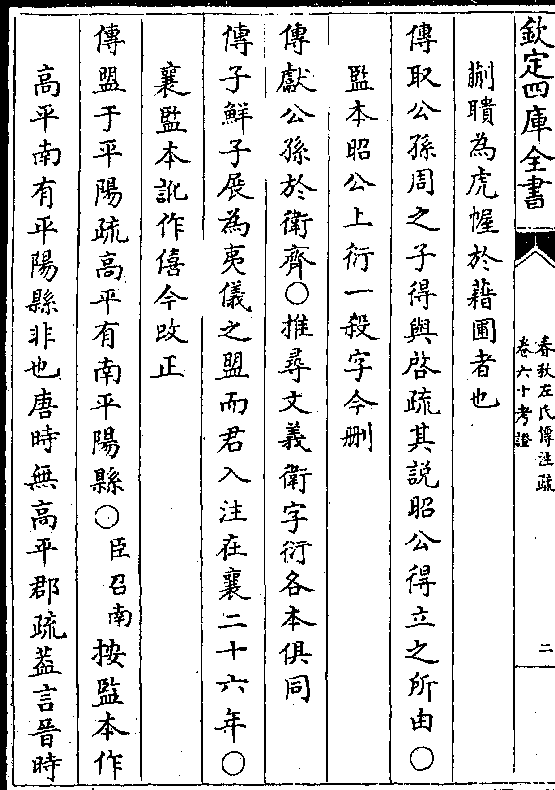 欽定四庫全書
春秋左氏傳注疏
卷六十考證
二
蒯聵為虎幄於藉圃者也
傳取公孫周之子得與啓疏其説昭公得立之所由〇
監本昭公上衍一殺字今刪
傳獻公孫於衛齊〇推尋文義衛字衍各本俱同
傳子鮮子展為夷儀之盟而君入注在襄二十六年〇
襄監本訛作僖今改正
傳盟于平陽疏高平有南平陽縣〇臣召南按監本作
高平南有平陽縣非也唐時無高平郡疏葢言晉時